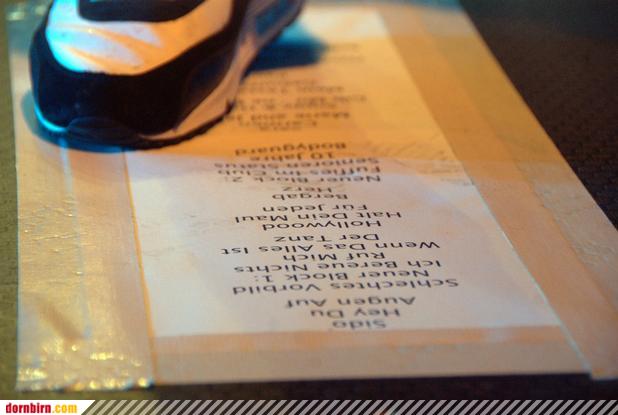 Sido
Hey Du
Augen Auf
Schlechtes Vorbild
Neuer Block 1:
Ich Bereue Nichts
Ruf Mich
Wenn Das Alles Ist
Der Tanz
Hollywood
Halt Dein Maul
Für Jeden
Bergab
Herz
Neuer Block 2:
Fuffies Im Club
Senioren Status
10 Jahre
Bodyguard
dornbirn.com